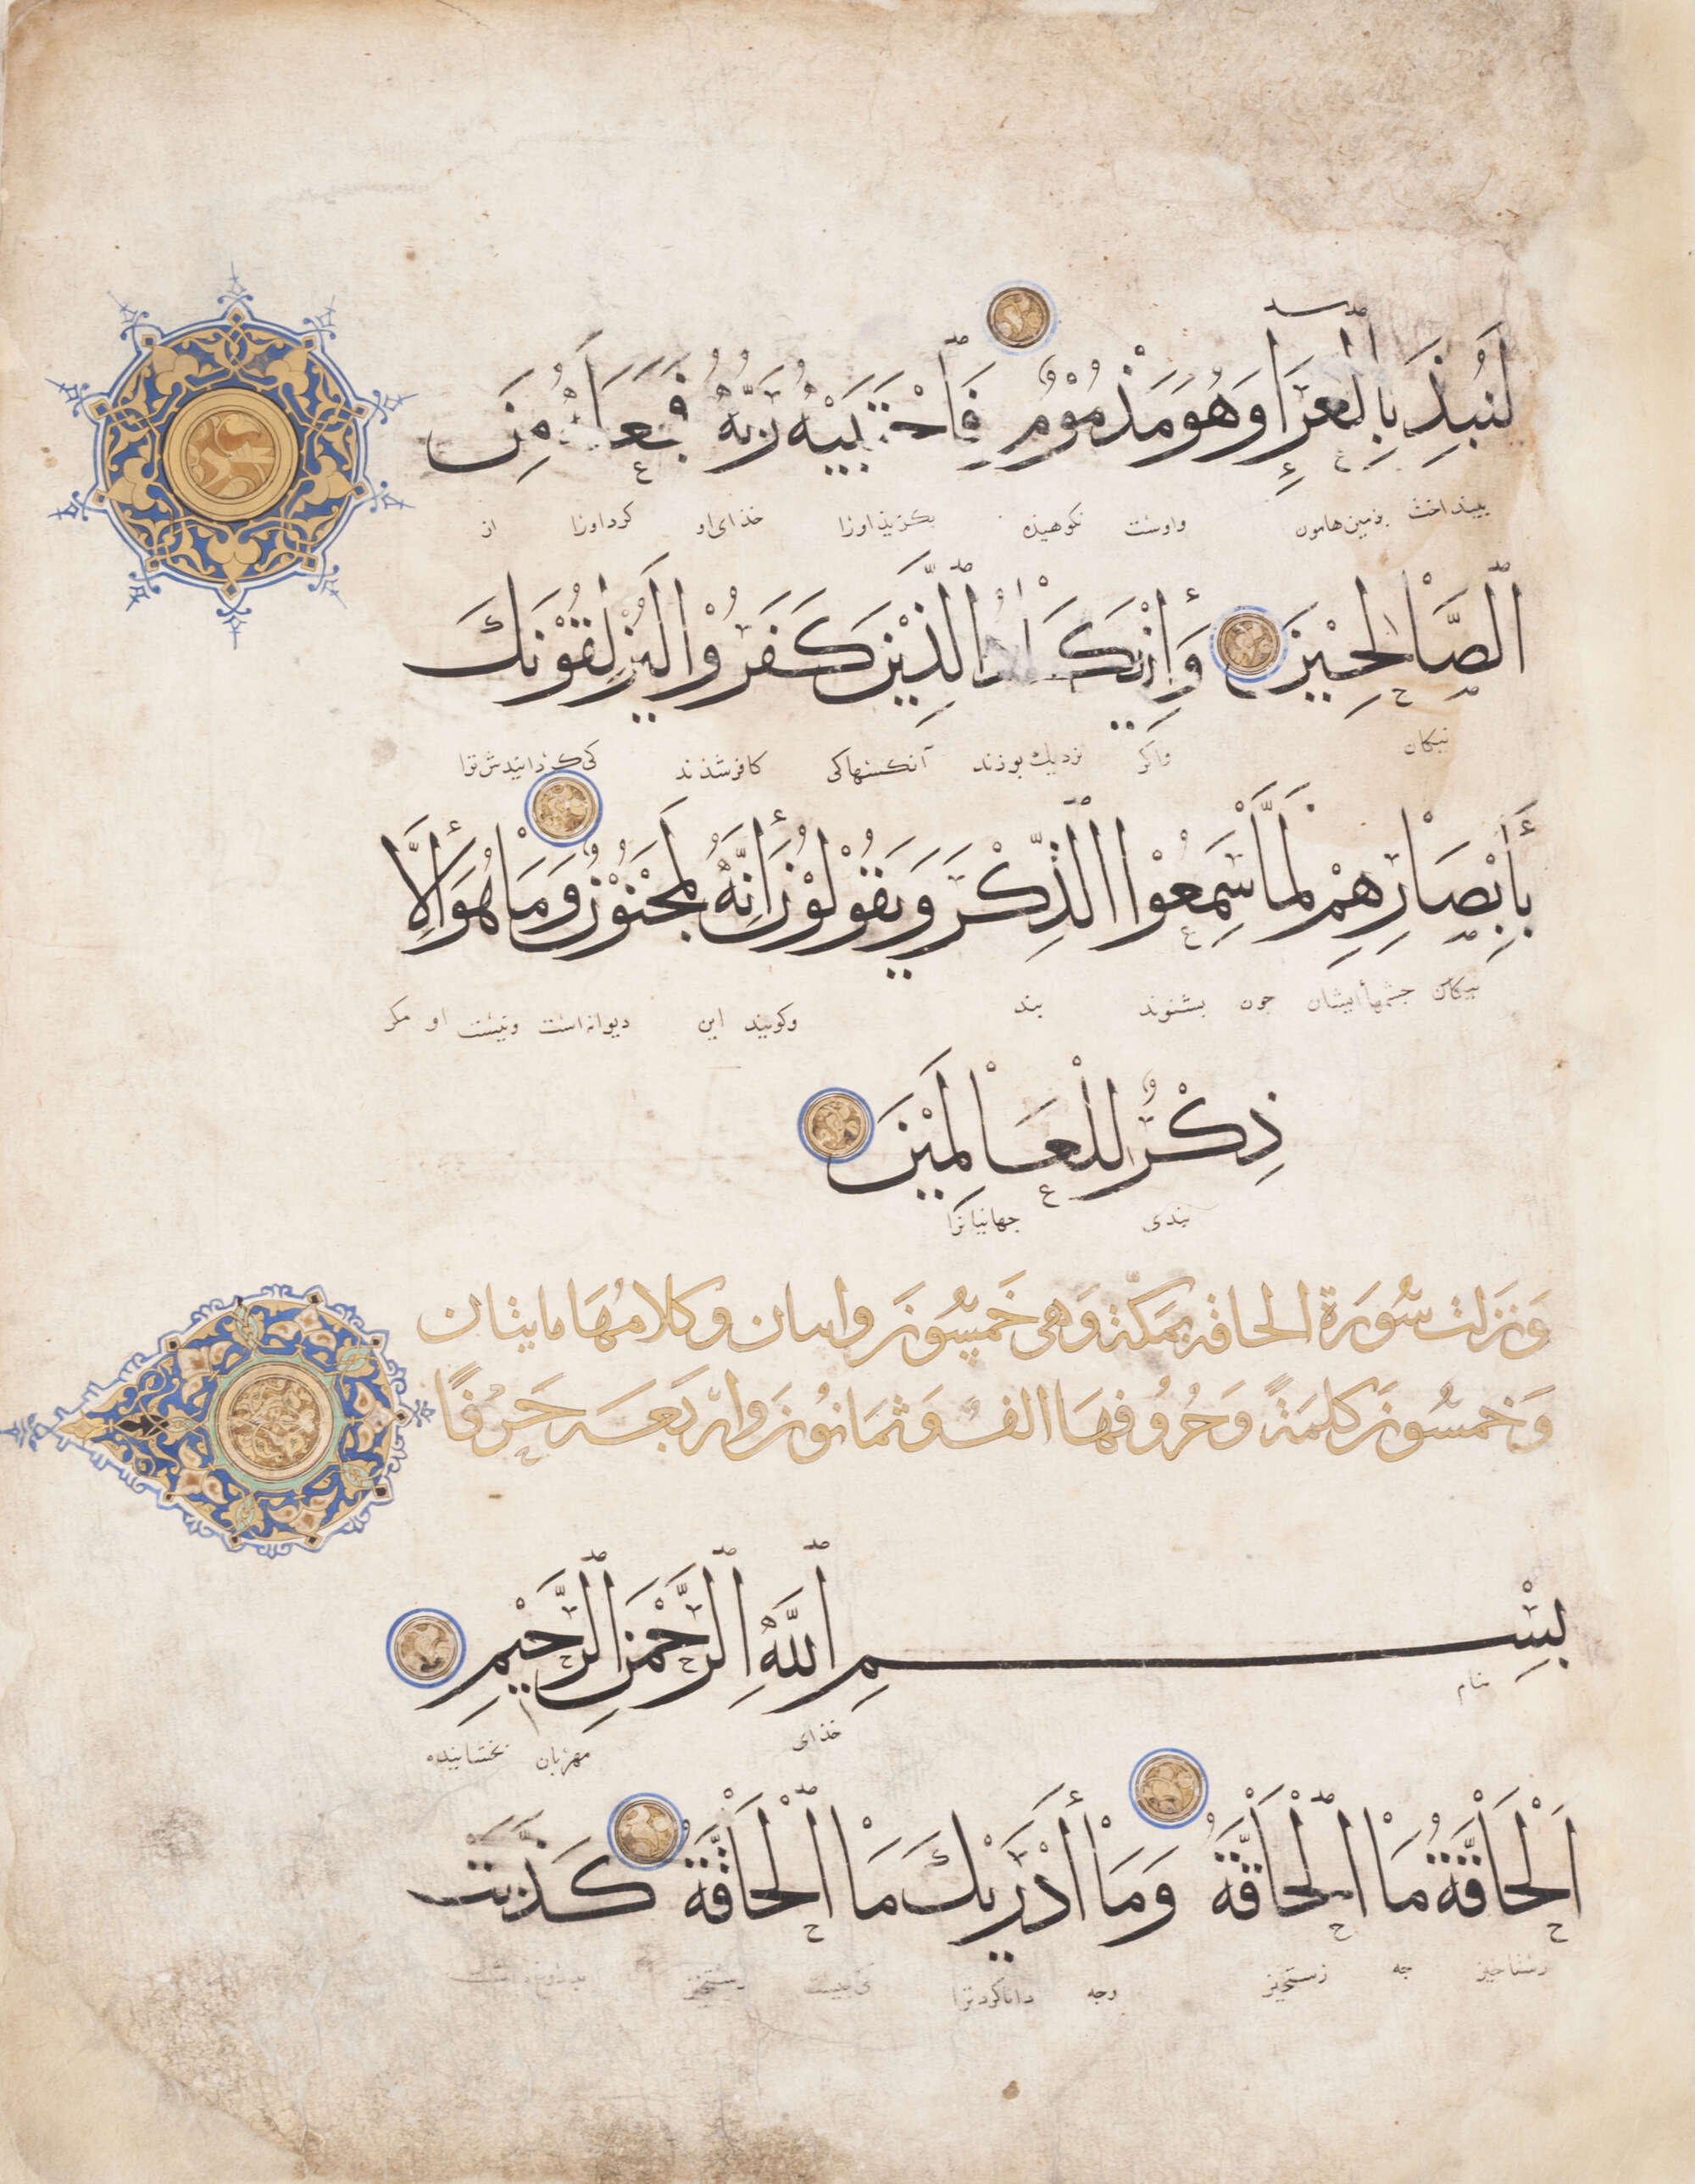 لَنُبِذَ بِالْعَرَاءِ وَهُوَ مَذْمُوْمٌ فَاجْتَبَيٰهُ رَبُّهُ فَجَعَلَهُ مِنَ
بینداخت بزمین هامون واوست نکوهیذه بکزیذ اورا خذای او کرد اورا از
الصَّالِحِيْنَ وَإِنْ يَكَادُ الَّذِيْنَ كَفَرُوْا لَيُزْلِقُوْنَكَ
نیکان واکر نزدیك بوذند آنکسهاکی کافر شذند
بِأَبْصَارِهِمْ لَمَّا سَمِعُوْا الذِّكْرَ وَيَقُوْلُوْنَ إِنَّهُ لَمَجْنُوْنٌ وَمَا هُوَ إِلَّا
جشمهاأ ایشان جون بشنوند بند وکویند این دیوانه است ونیست او مکر
ذِكْرٌ لِلْعَالَمِيْنَ
بندی جهانیانرا
وَنَزَلَت سُوَرَة الحاقه بمَكّة وَهى خَمسُونَ واىىان وكلامُهَا مايتان
وَخمسُونَ كلمَةً وَحُرُوفهَا الفٌ وَثمَانُونَ واربَعَه حَرْفًا
بِسْمِ اللهِ الرَّحْمٰنِ الرَّحِيْمِ
بنام خذای مهربان بخشاینده
اَلْحَاقَّةُ مَا الْحَاقَّةُ وَمَا أَدْرَيٰكَ مَا الْحَاقَّةُ كَذَّبَتْ
رستاخیز جه رستخیز وجه داناکرد ترا کی جیست رستخیز